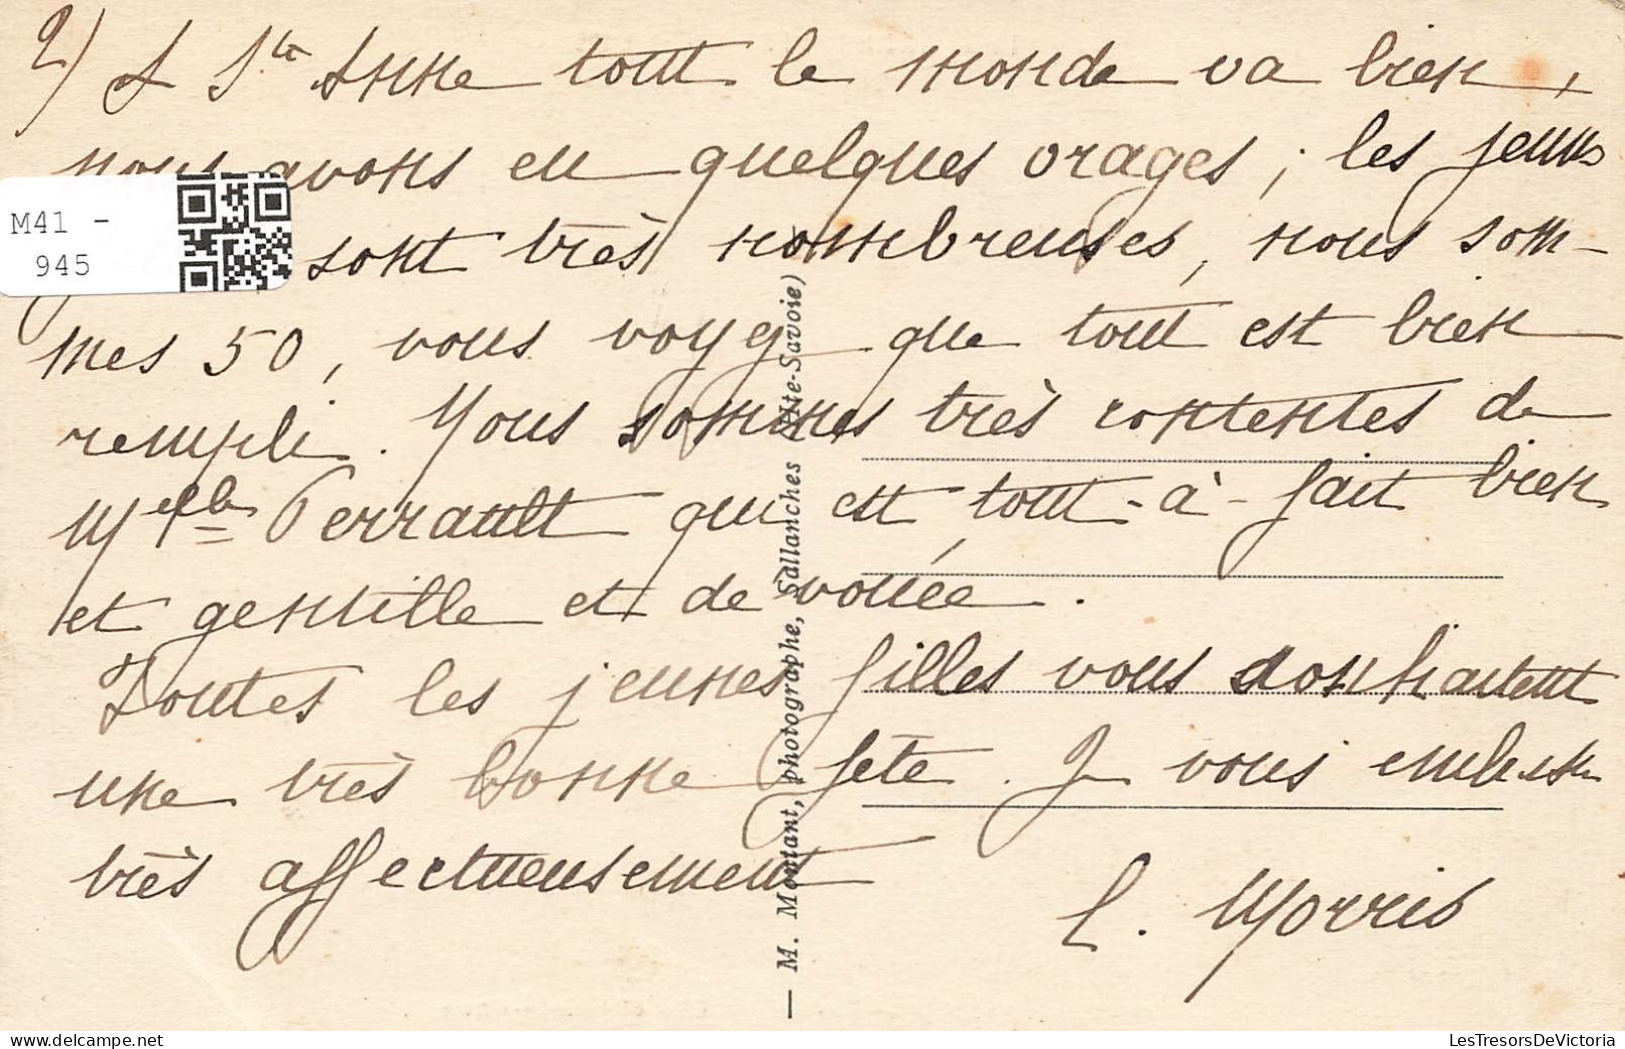 2) A Ste Anne tout le monde va bien,
nous avons eu quelques orages ; les jeunes
sont très nombreuses, nous som-
mes 50, vous voyez que tout est bien
rempli. Nous sommes très contentes de
Melle Perrault qui est tout-à-fait bien
et gentille et dévouée.
Toutes les jeunes filles vous souhaitent
une très bonne fête. Je vous embrasse
très affectueusement
L. Morris
M41 -
945
— M. Montant, photographe, Sallanches (Hte-Savoie)
LesTresorsDeVictoria